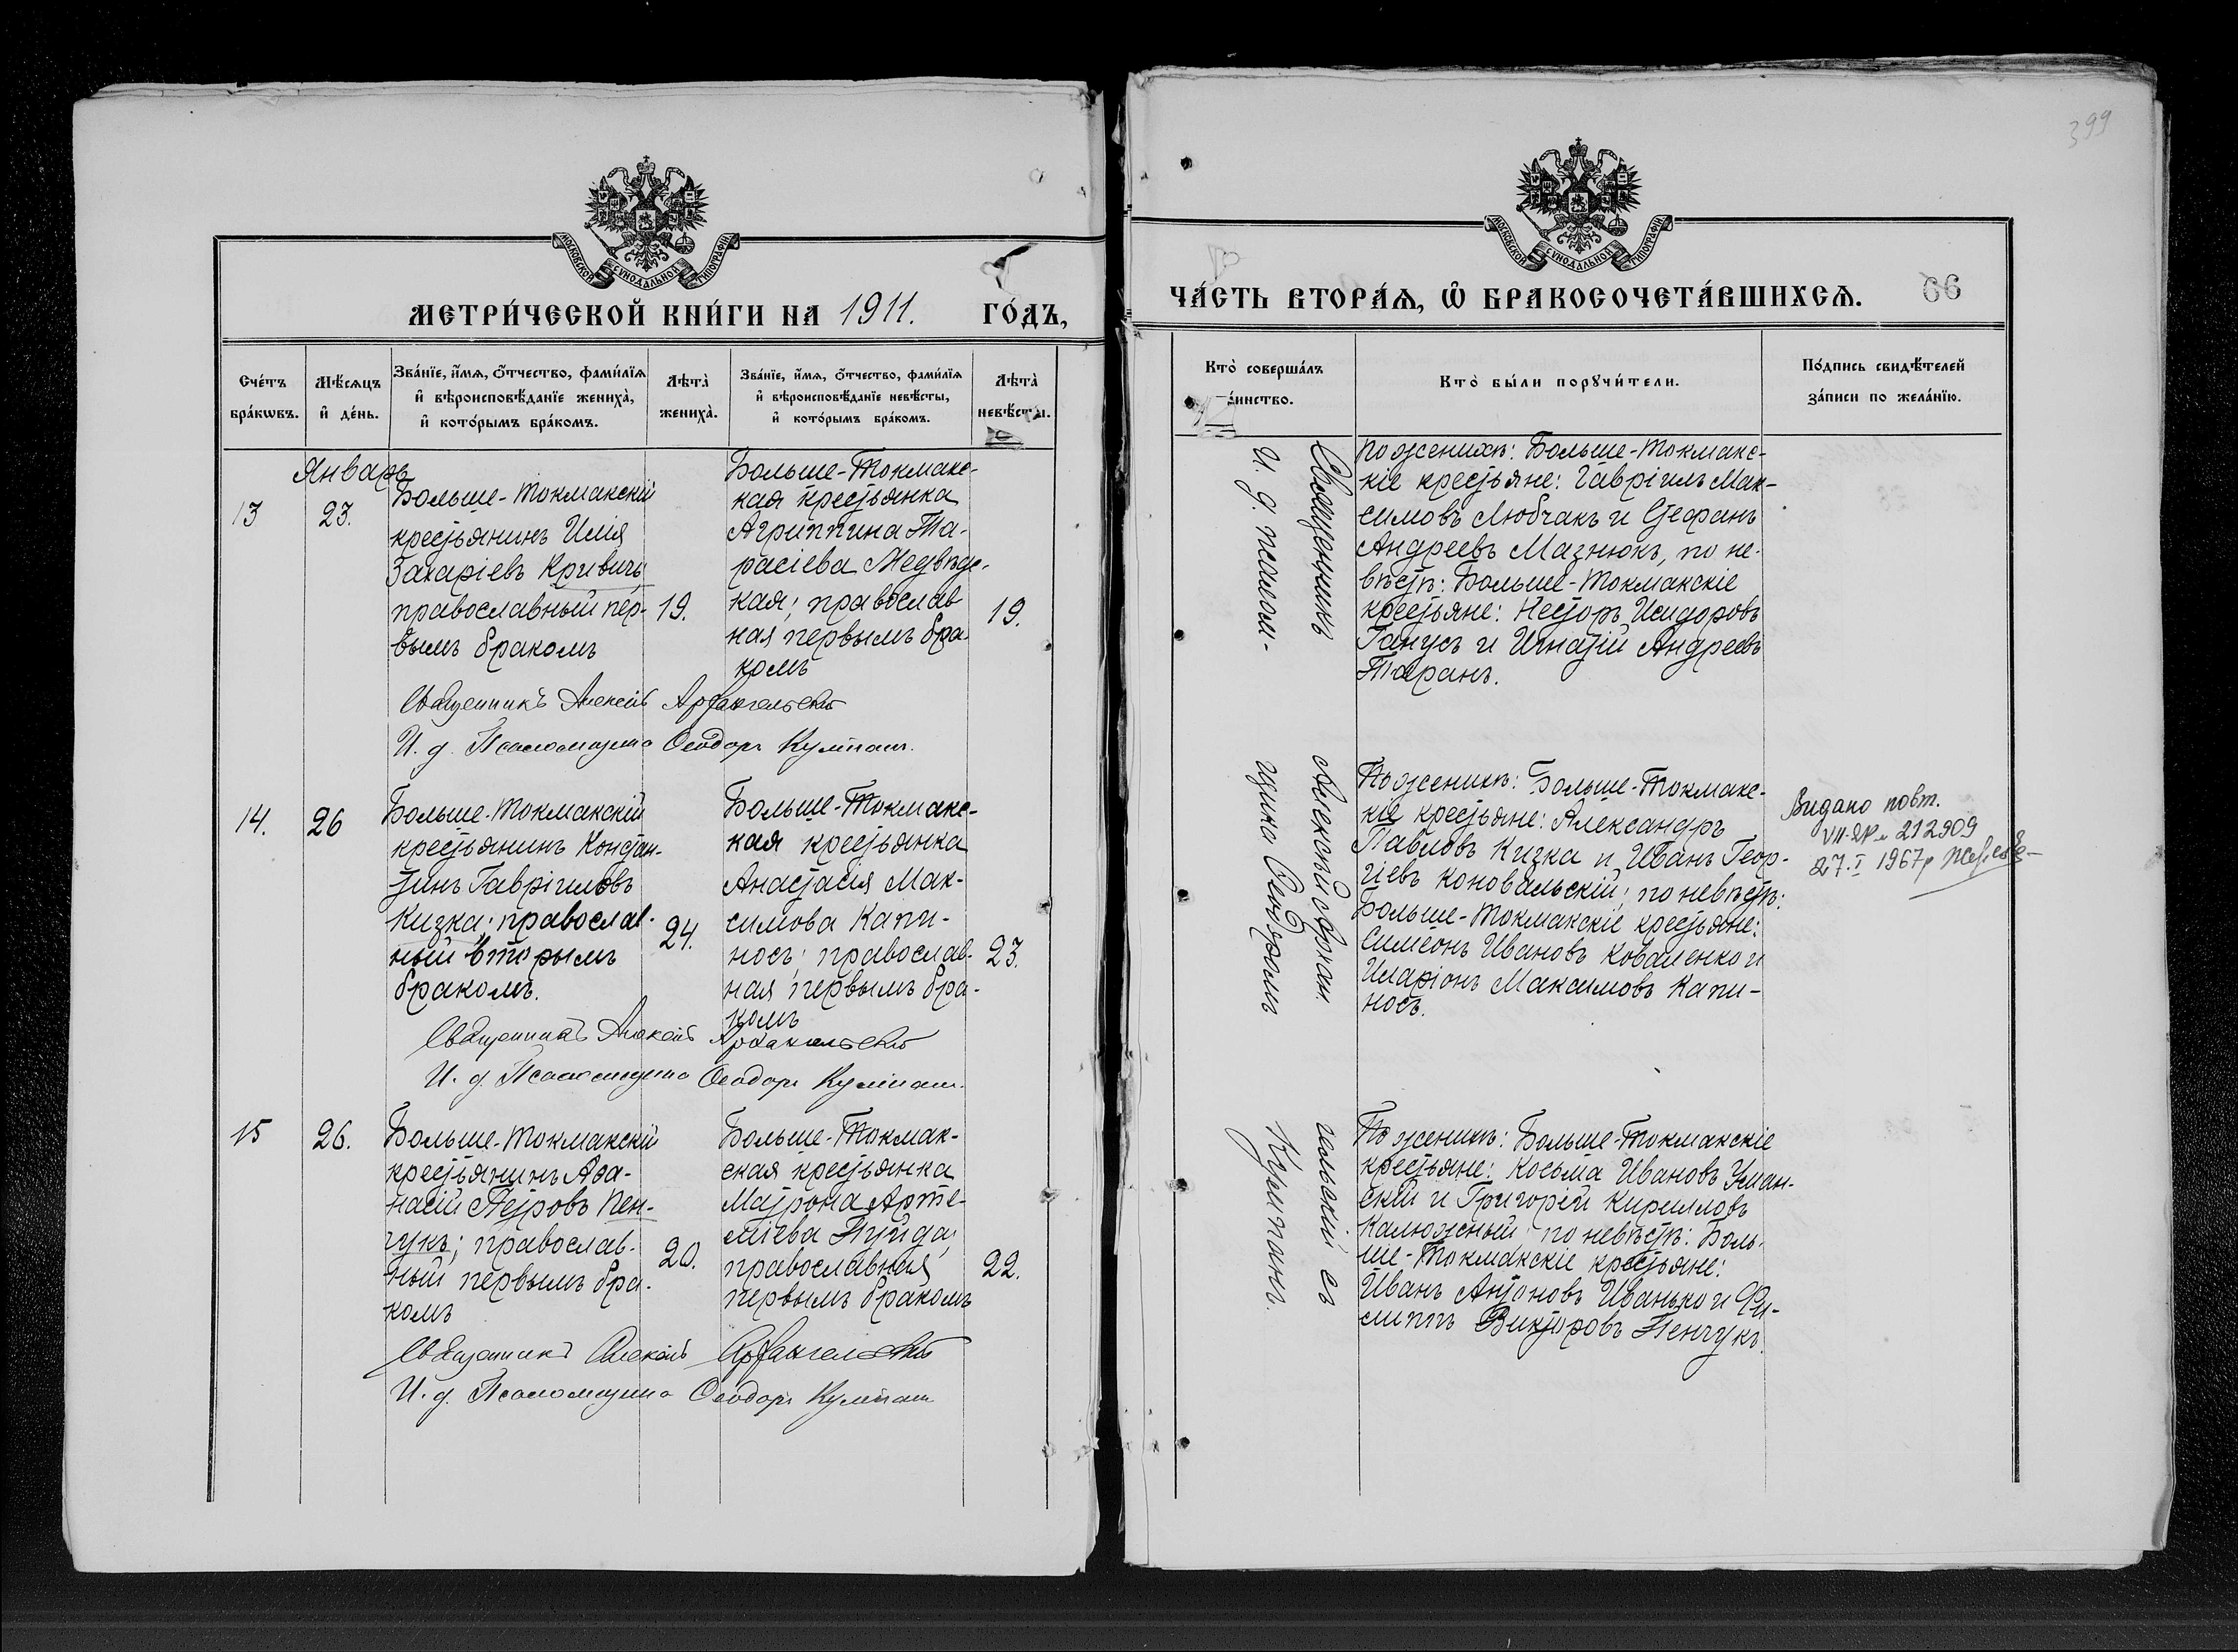 399
МОСКОВСКОЙ СѴНОДАЛЬНОЙ ТИПОГРАФІИ
МЕТРИ́ЧЕСКОЙ КНИ́ГИ НА 1911. ГО́ДЪ,
Сче́тъ бра́кѡвъ.
Мѣ́сяцъ и҆ де́нь.
Зва́нїе, и҆́мѧ, ѻ҆́тчество, фами́лїѧ
и҆ вѣроисповѣ́данїе жениха̀,
и҆ кото́рымъ бра́комъ.
Лѣта̀ жениха̀.
Зва́нїе, и҆́мѧ, ѻ҆́тчество, фами́лїѧ
и҆ вѣроисповѣ́данїе невѣ́сты,
и҆ кото́рымъ бра́комъ.
Лѣта̀ невѣ́сты.
Январь
13
23.
Больше-Токмакскій
крестьянинъ Илія
Захаріевъ Кривичъ
православный пер-
вымъ бракомъ
19.
Больше-Токмакс-
кая крестьянка
Агриппина Та-
расіева Медвѣдс-
кая; православ
ная первымъ бра-
комъ
19.
Священникъ Алексій Архангельскій
И. д. Псаломщика Ѳеодоръ Кулишъ.
14.
26
Больше-Токмакскій
крестьянинъ Констан-
тинъ Гавріиловъ
Кизка; православ-
ный вторымъ
бракомъ.
24.
Больше-Токмакс-
кая крестьянка
Анастасія Мак-
симова Капи-
носъ; православ-
ная первымъ бра-
комъ
23.
Священникъ Алексій Архангельскій
И. д. Псаломщика Ѳеодоръ
15
26.
Больше-Токмакскій
крестьянинъ Аѳа-
насій Петровъ Пен-
чукъ; православ-
ный первымъ бра-
комъ
20.
Больше-Токмак-
ская крестьянка
Матрона Арте-
міева Пуйда;
православная
первымъ бракомъ
22.
Священникъ Алексій Архангельскій
И. д. Псаломщика Ѳеодоръ
МОСКОВСКОЙ СѴНОДАЛЬНОЙ ТИПОГРАФІИ
ЧА́СТЬ ВТОРА́Ѧ, Ѽ БРАКОСОЧЕТА́ВШИХСѦ.
66
Кто̀ соверша́лъ
та́инство.
Кто̀ бы́ли порꙋчи́тели.
По́дпись свидѣ́телей
за́писи по жела́нїю.
Священникъ Алексѣй Архан-
гельскій съ
И. д. псалом-
щика Ѳеодоромъ
По женихѣ: Больше-Токмакс-
кіе крестьяне: Гавріилъ Мак-
симовъ Любчакъ и Стефанъ
Андреевъ Мазнюкъ, по не-
вѣстѣ: Больше-Токмакскіе
крестьяне: Несторъ Исидоровъ
Ганусъ и Игнатій Андреевъ
Таранъ.
По женихѣ: Больше-Токмакс-
кіе крестьяне: Александръ
Павловъ Кизка и Иванъ Геор-
гіевъ Коновальскій; по невѣстѣ:
Больше-Токмакскіе крестьяне:
Симеонъ Ивановъ Коваленко и
Иларіонъ Максимовъ Капи-
носъ.
Видано повт.
212909
27.I 1967р
По женихѣ: Больше-Токмакскіе
крестьяне: Косьма Ивановъ Уман-
скій и Григорій Кирилловъ
Калюжный; по невѣстѣ: Боль-
ше-Токмакскіе крестьяне:
Иванъ Антоновъ Иванько и Фи-
липпъ Викторовъ Пенчукъ.